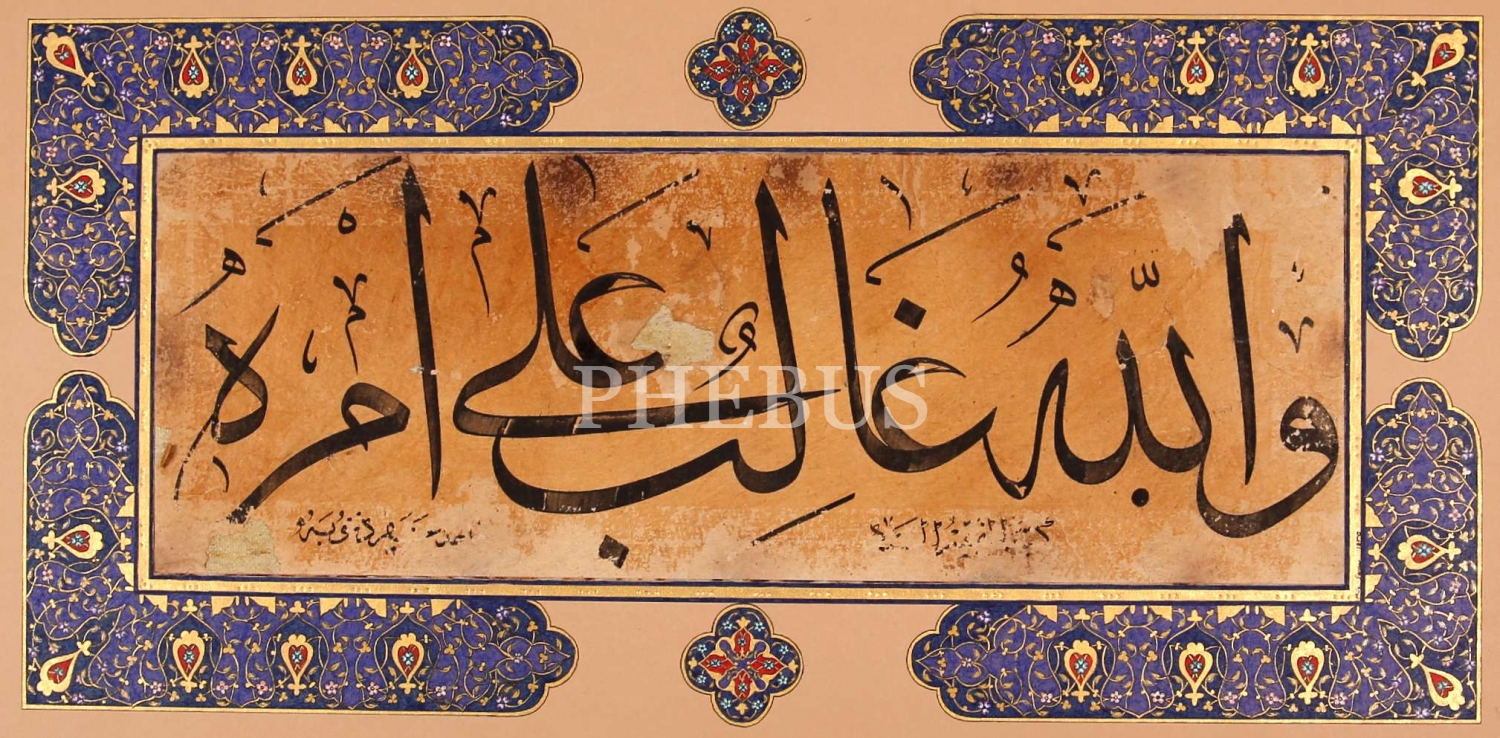 وَاللّٰهُ غَالِبٌ عَلٰى اَمْرِهِ
PHEBUS